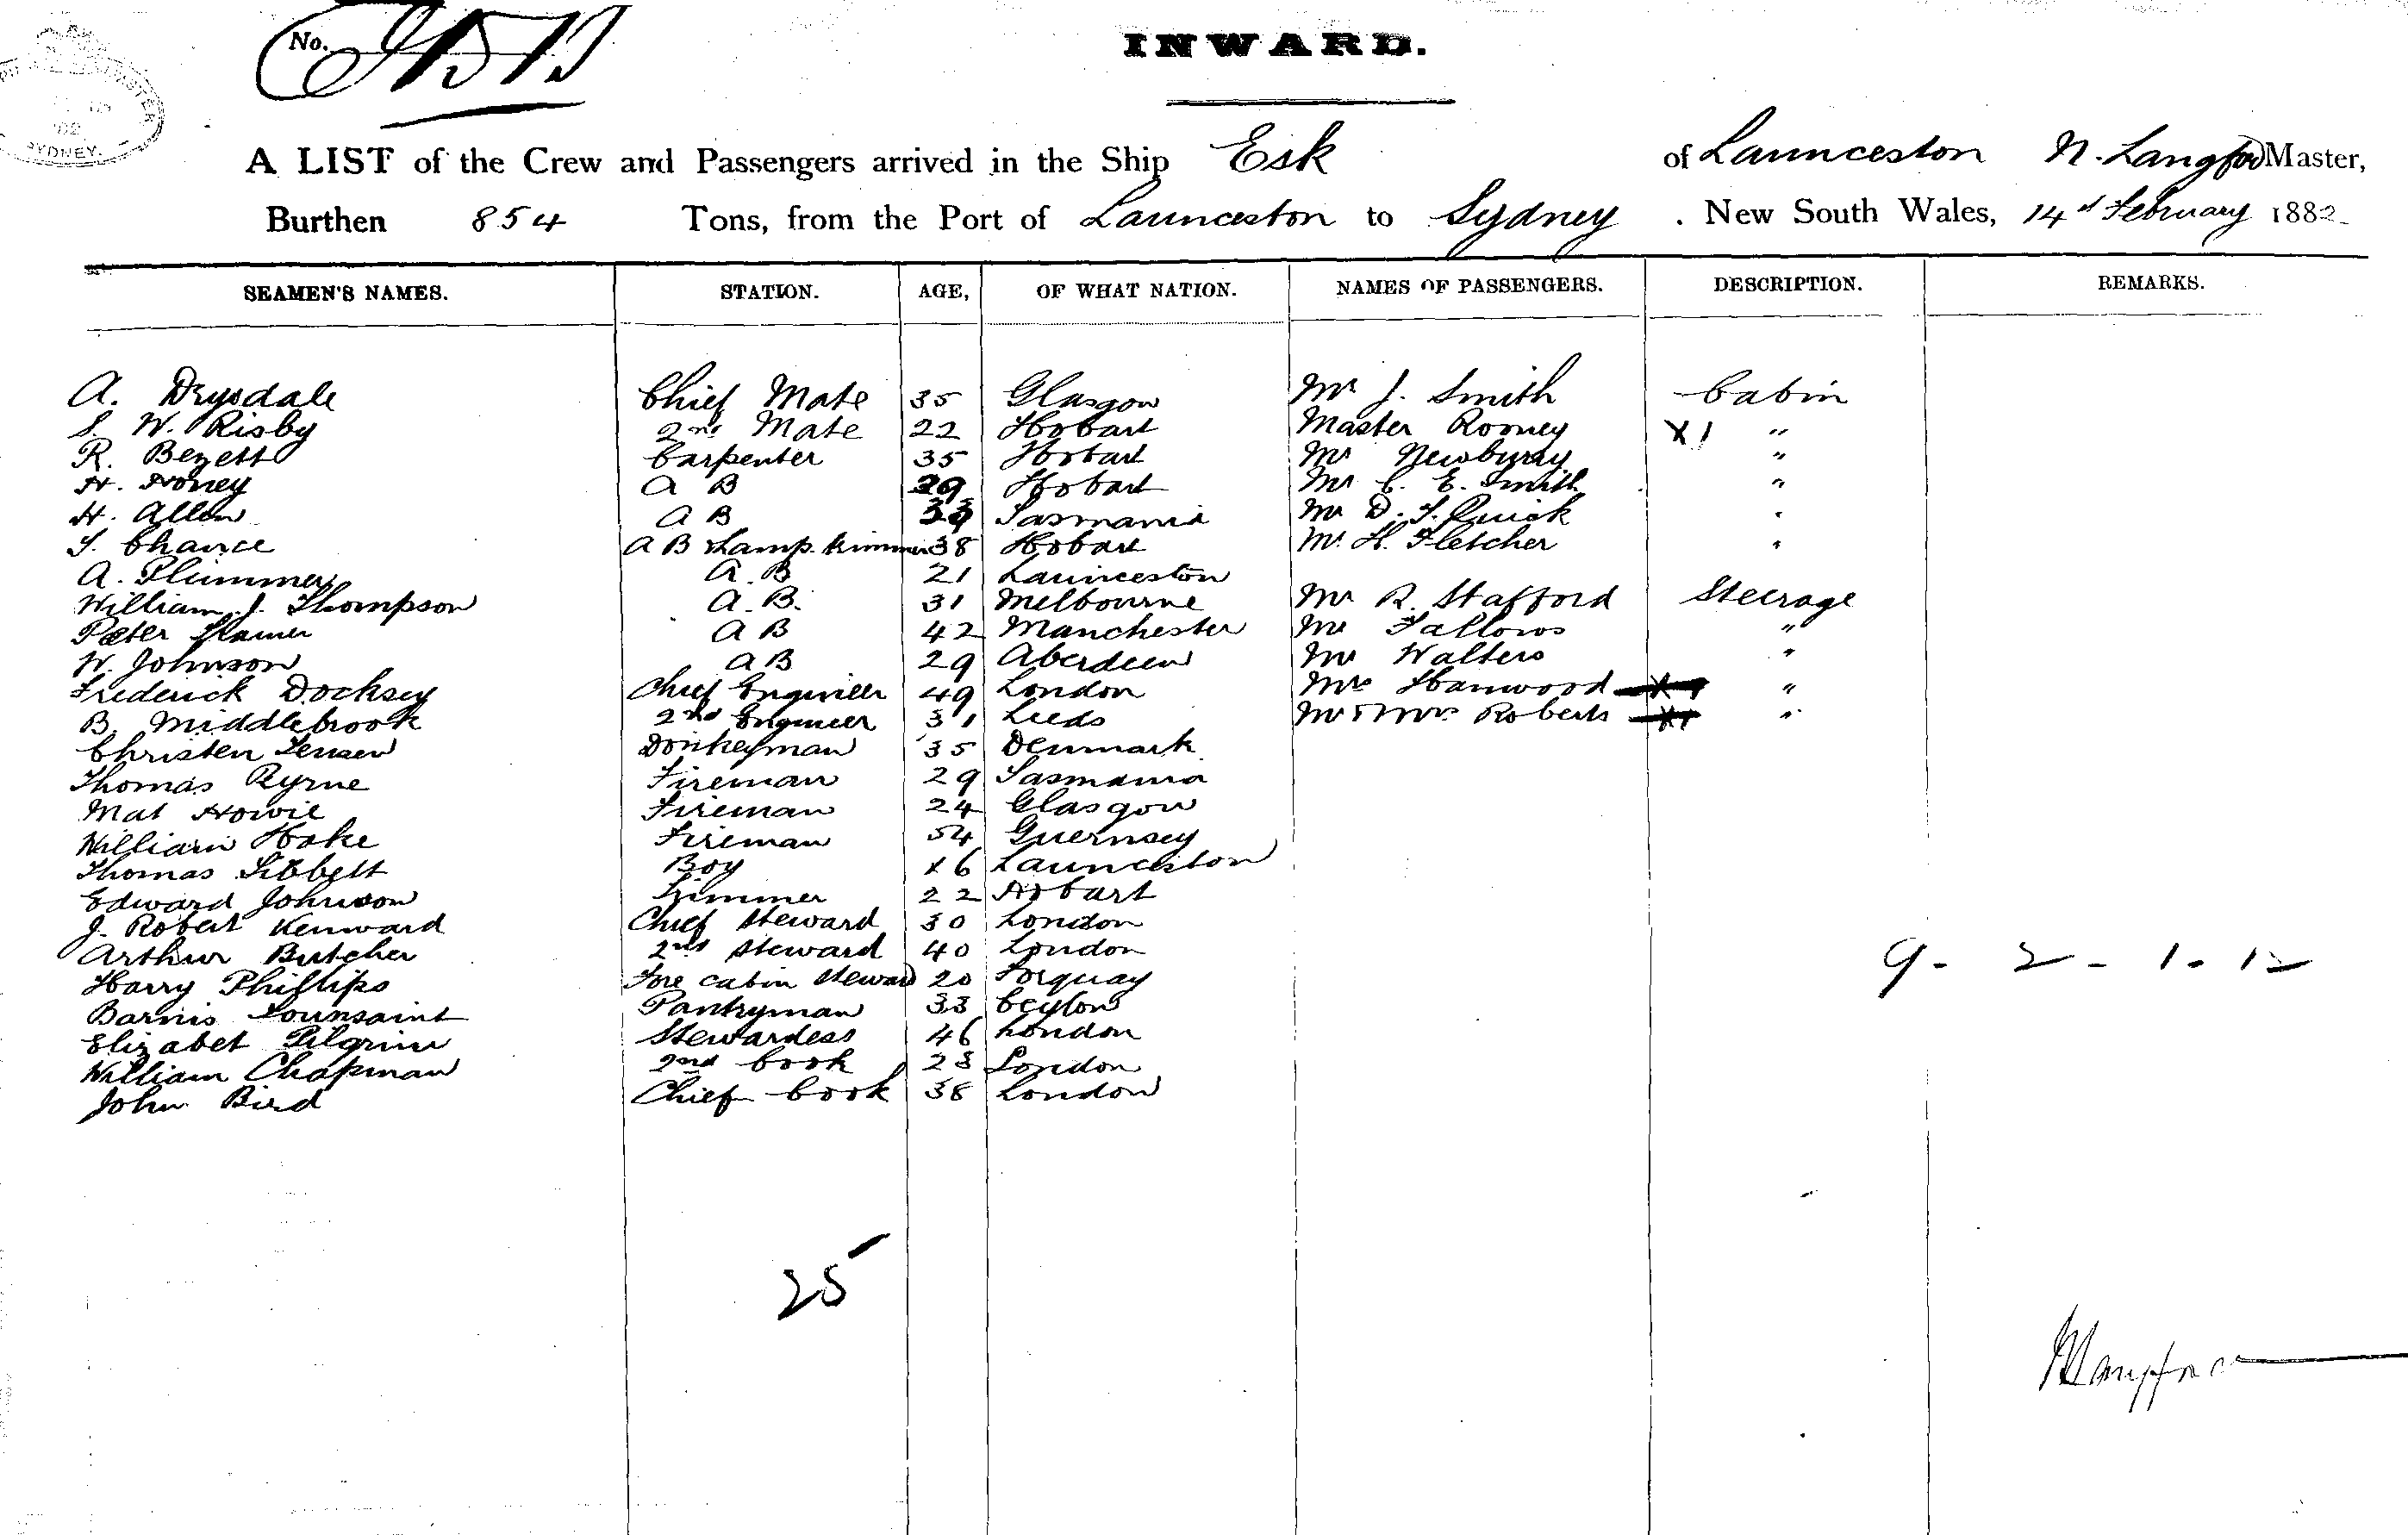 No.
INWARD.
SYDNEY.
A LIST of the Crew and Passengers arrived in the Ship Esk of Launceston N. Langford Master,
Burthen 854 Tons, from the Port of Launceston to Sydney . New South Wales, 14th February 1882
SEAMEN'S NAMES. STATION. AGE, OF WHAT NATION. NAMES OF PASSENGERS. DESCRIPTION. REMARKS.
A. Drysdale Chief Mate 35 Glasgow Mr J. Smith Cabin
S. W. Risby 2nd Mate 22 Hobart Master Rooney X1 "
R. Bezett Carpenter 35 Hobart Mr Newburry "
H. Honey A B 29 Hobart Mr C. E. Smith "
H. Allen A B Tasmania Mr D. T. Quick "
T. Chance A B & Lamp trimmer 38 Hobart Mr. H. Fletcher "
A. Plummer A. B 21 Launceston
William J. Thompson A. B. 31 Melbourne Mr R. Stafford Steerage
Peter A B 42 Manchester Mr Fallows "
W. Johnson A B 29 Aberdeen Mr Walters "
Frederick Docksey Chief Engineer 49 London Mrs Hanwood "
B. Middlebrook 2nd Engineer 31 Leeds Mr & Mrs Roberts "
Christen Jensen Donkeyman 35 Denmark
Thomas Byrne Fireman 29 Tasmania
Mat Howie Fireman 24 Glasgow
William Hoke Fireman 54 Guernsey
Thomas Sibbett Boy 16 Launceston
Edward Johnson Trimmer 22 Hobart
J. Robert Kenward Chief Steward 30 London
Arthur Butcher 2nd Steward 40 London
Harry Phillips Fore Cabin Steward 20 Torquay
9 - 2 - 1 - 12
Barnis Tounsaint Pantryman 33 Ceylon
Elizabet Pilgrim Stewardess 46 London
William Chapman 2nd Cook 23 London
John Bird Chief Cook 38 London
25